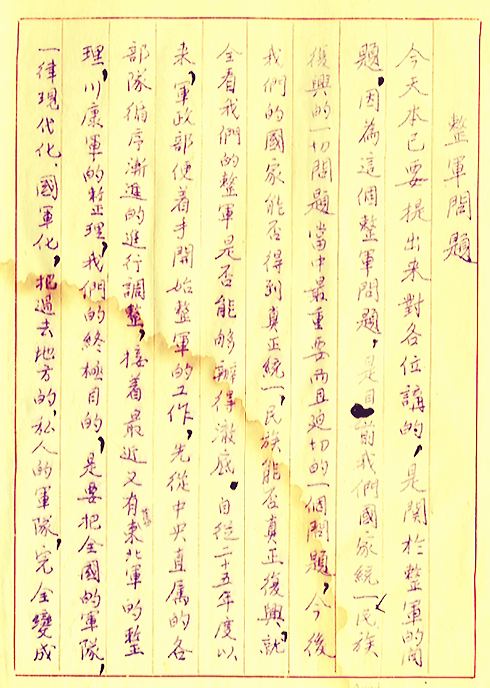 整軍問題
今天本已要提出來對各位講的，是関於整軍的問
題，因為這個整軍問題，是目前我們國家統一民族
復興的一切問題當中最重要而且迫切的一個問題，今後
我們的國家能否得到真正統一，民族能否真正復興，就
全看我們的整軍是否能够辦得澈底。自從二十五年度以
來，軍政部便着手開始整軍的工作，先從中央直属的各
部隊循序漸進的進行調整，接着最近又有東北軍的整
理，川康軍的整理，我們的終極目的，是要把全國的軍隊，
一律現代化、國軍化，把過去地方的，私人的軍隊，完全變成